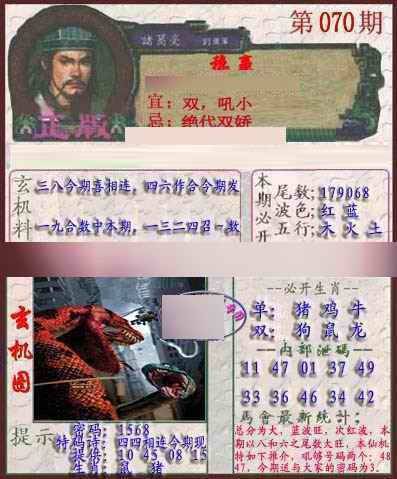 第070期
諸葛亮 劉軍師
稳赢
宜：双，吼小
忌：绝代双娇
正版
玄机料
三八今期喜相连，四六作合今期发
一九合数中本期，一三二四召一数
本期必开
尾数:179068
波色:红 蓝
五行:木 火 土
玄机图
--必开生肖--
单: 猪 鸡 牛
双: 狗 鼠 龙
内部泄码
11 47 01 37 49
33 36 46 34 42
馬會最新統計:
总分为大，蓝波旺，次红波，本
期以八和六之尾数大旺，本仙机
特如下推介，吼够号码两个：48
47，今期送与大家的密码为3.
提示
密码: 1568
特码诗: 四四相连今期现
提倍: 10 45 08 15
生肖: 鼠 猪